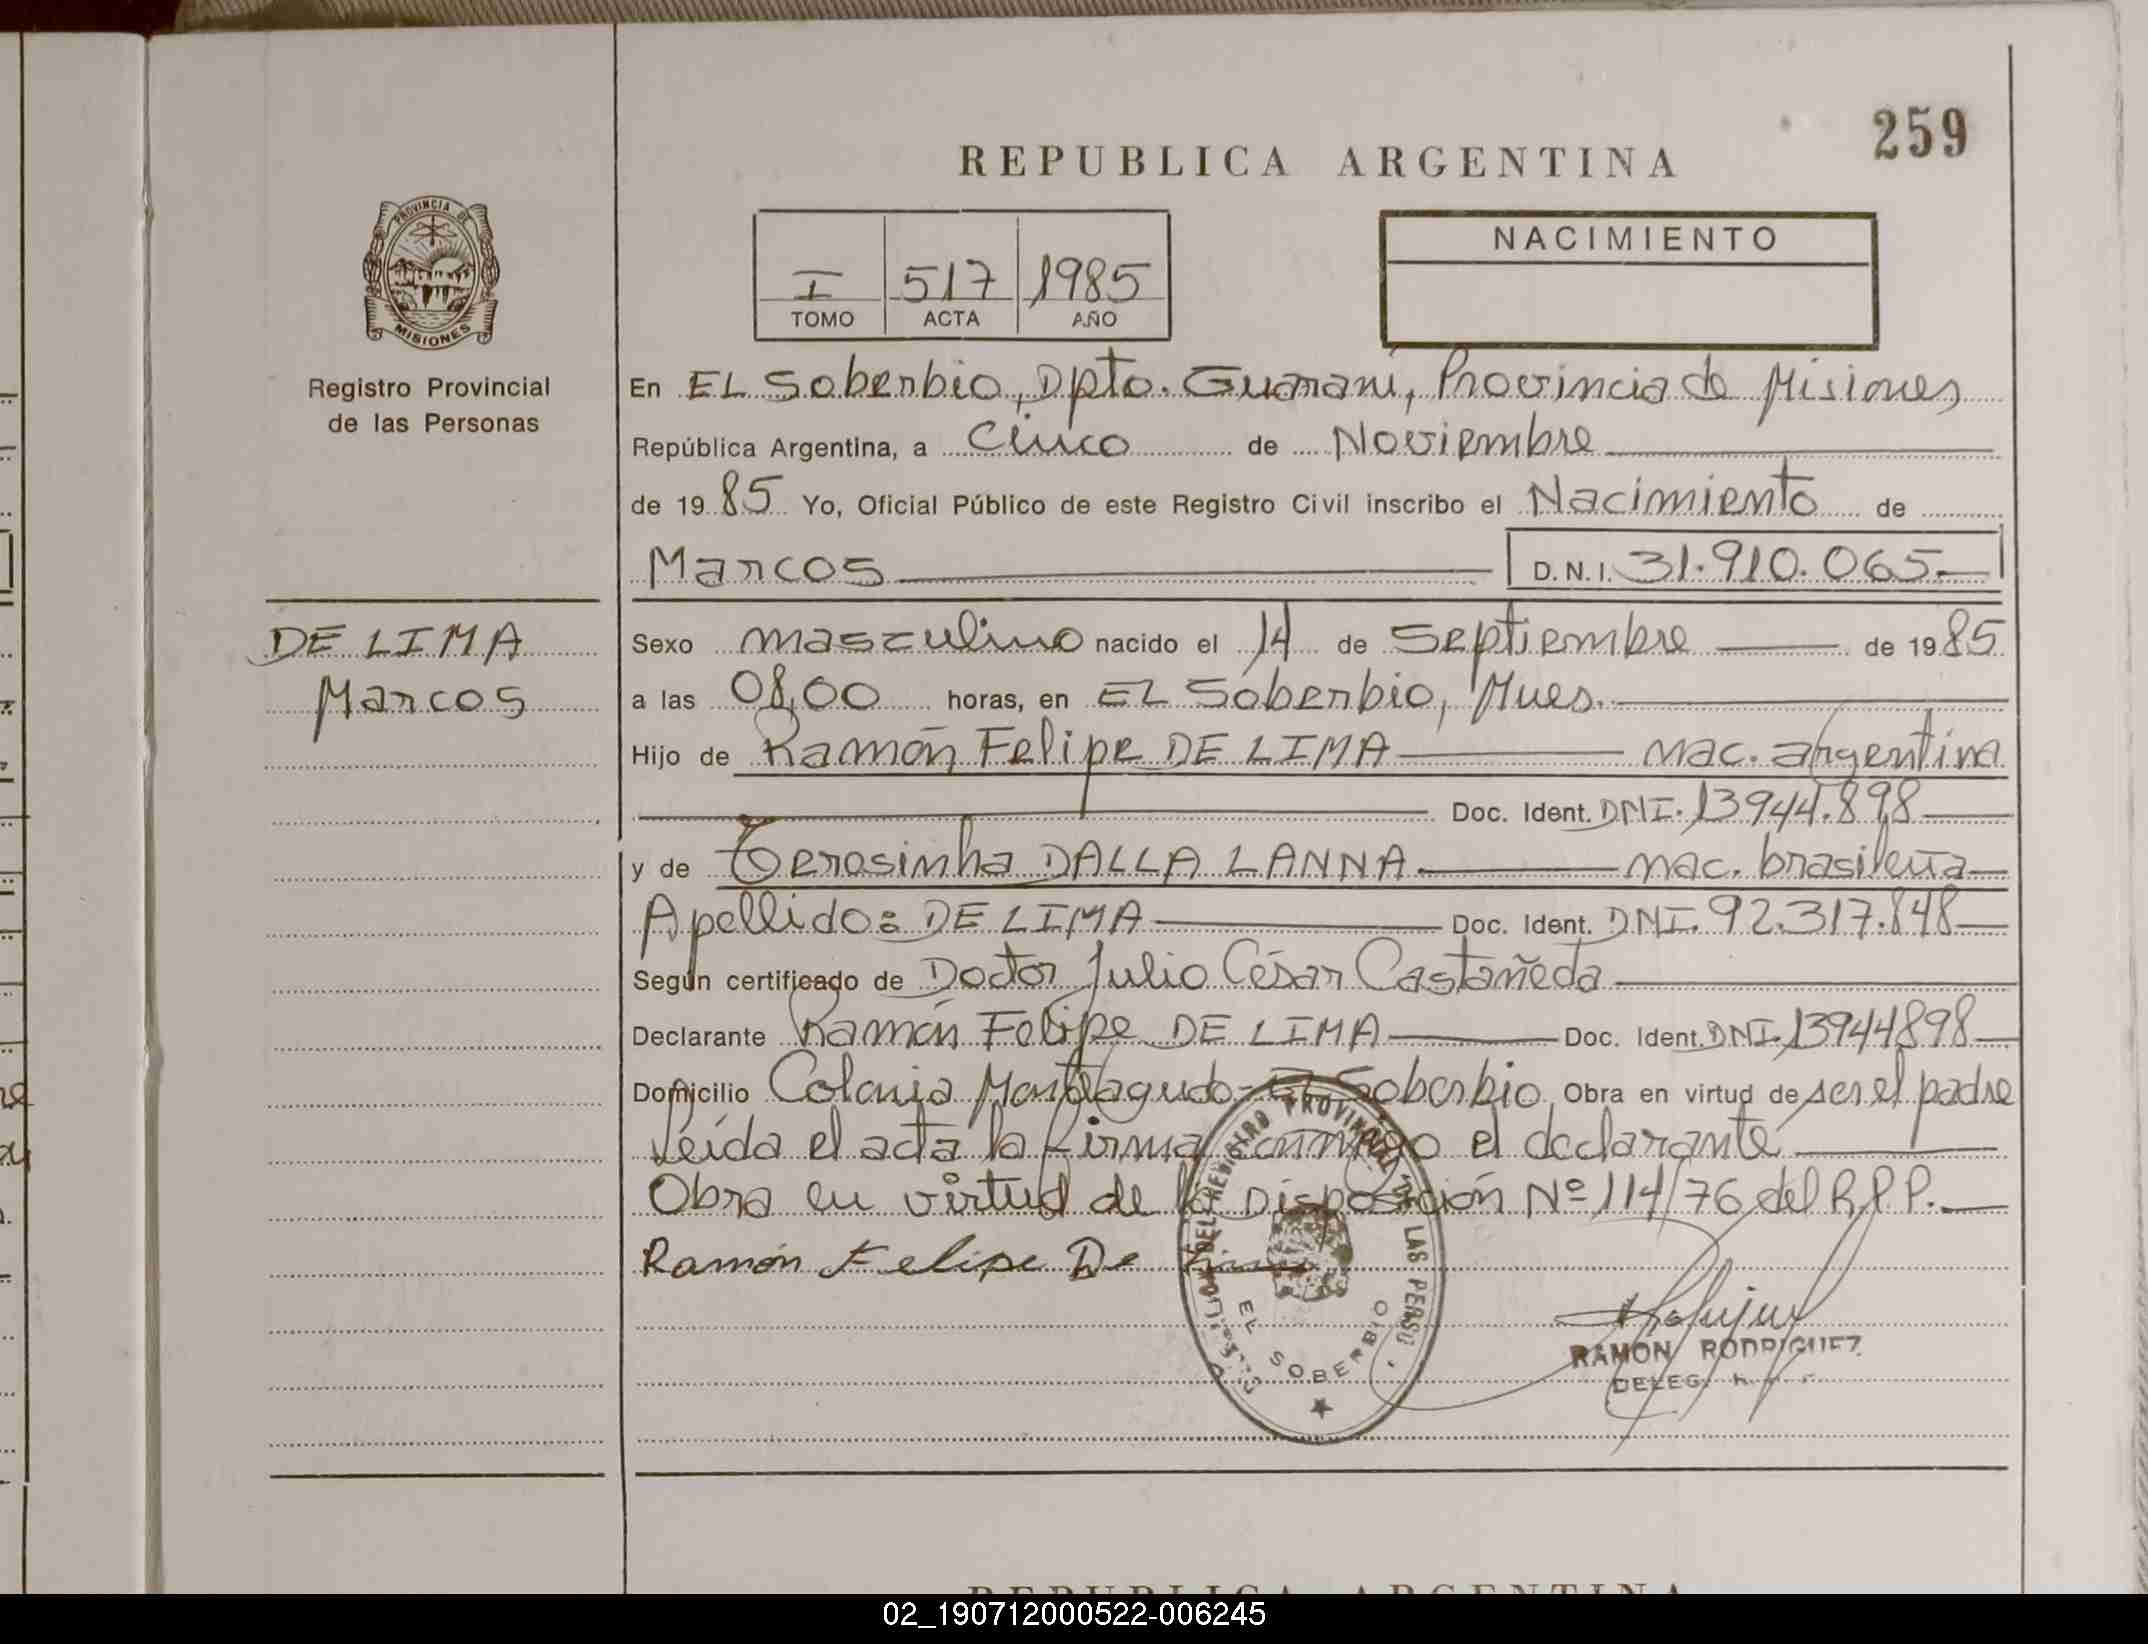 259
REPUBLICA ARGENTINA
PROVINCIA DE
MISIONES
Registro Provincial
de las Personas
I 517 1985
TOMO ACTA AÑO
NACIMIENTO
En EL Soberbio, Dpto. Guaraní, Provincia de Misiones
República Argentina, a Cinco de Noviembre
de 1985 Yo, Oficial Público de este Registro Civil inscribo el Nacimiento de
Marcos D.N.I. 31.910.065.
DE LIMA
Marcos
Sexo masculino nacido el 14 de Septiembre de 1985
a las 08,00 horas, en EL Soberbio, Mnes.
Hijo de Ramón Felipe DE LIMA nac. argentina
Doc. Ident. DNI. 13944.898
y de Teresinha DALLA LANNA nac. brasileña
Apellido: DE LIMA Doc. Ident. DNI. 92.317.848
Según certificado de Doctor Julio César Castañeda
Declarante Ramón Felipe DE LIMA Doc. Ident. DNI. 13944898
Domicilio Colonia Monteagudo-El Soberbio Obra en virtud de ser el padre
Leída el acta la firma conmigo el declarante
Obra en virtud de la Disposición Nº 114/76 del R.P.P.
Ramón Felipe De Lima
DEL REGISTRO PROVINCIAL DE LAS PERSO
EL SOBERBIO
RAMON RODRIGUEZ
DELEG.
REPUBLICA ARGENTINA
02_190712000522-006245